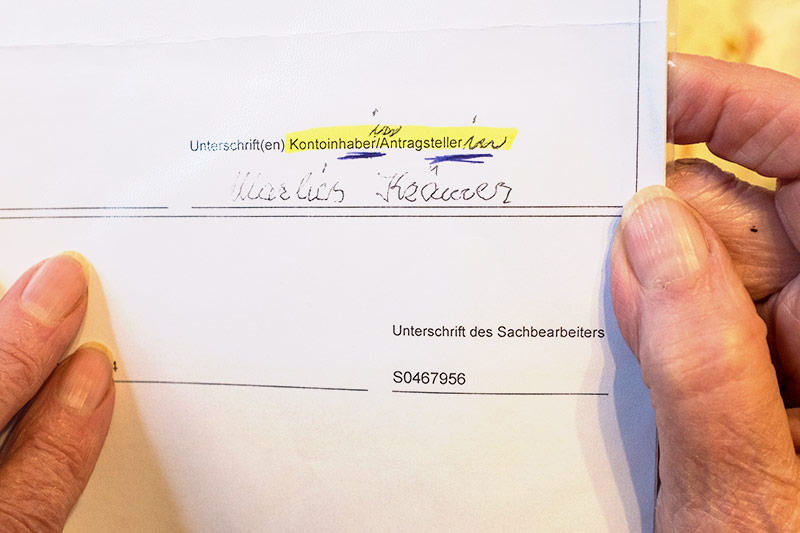 innen
Unterschrift(en) Kontoinhaber/Antragsteller innen
Marlies Krämer
Unterschrift des Sachbearbeiters
4
S0467956